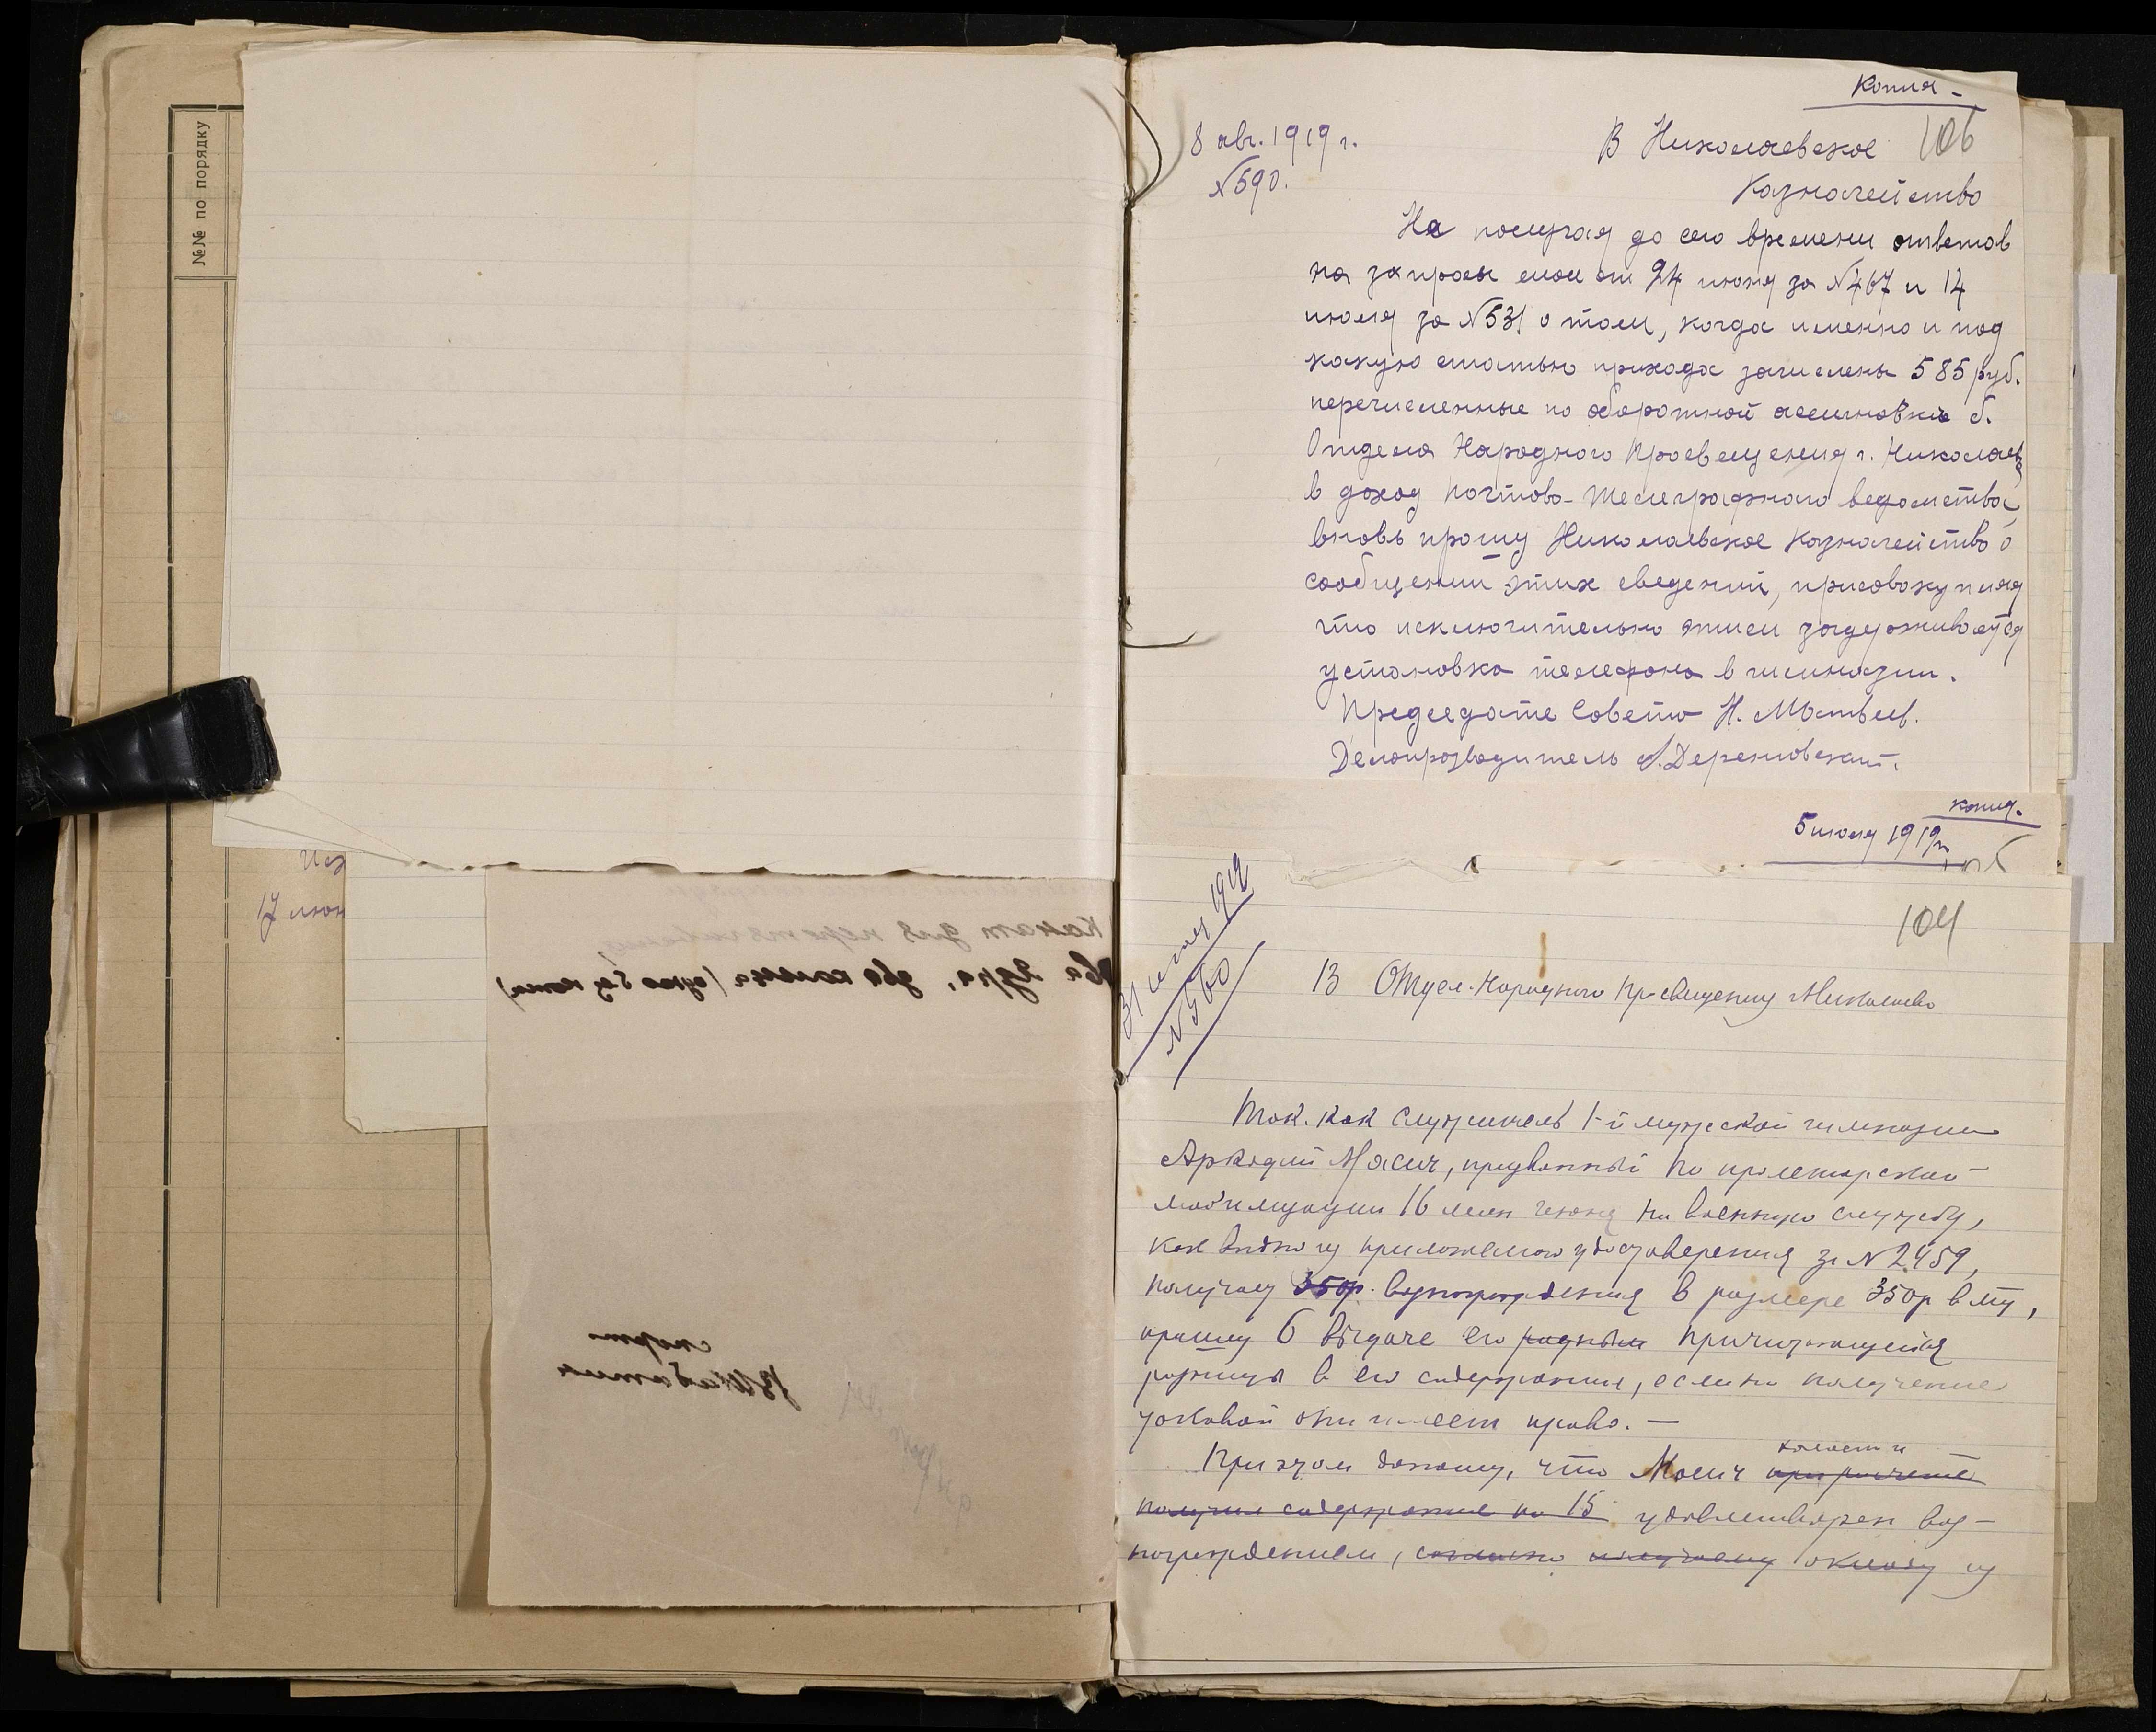 №№ по порядку
17 июн
Канат для перетягивания,
два ядра, два копья (одно без копья)
спорт.
Копия -
8 авг. 1919 г.
№ 590.
В Николаевское
106
Казначейство
Не получая до сего времени ответов
на запросы мои от 24 июня за № 467 и 14
июля за № 531 о том, когда именно и под
какую статью прихода зачислены 585 руб.
перечисленные по оборотной ассигновке б.
Отдела Народного Просвещения г. Николаева
в доход почтово-телеграфного ведомства,
вновь прошу Николаевское Казначейство о
сообщении этих сведений, присовокупляя
что исключительно этим задерживается
установка телефона в гимназии.
Председате Совета Н. Матвеев.
Делопроизводитель А. Дереновский.
копия.
5 июля 1919 г.
104
31 июля 1919
№ 560
В Отдел Народного Просвещения г. Николаева
Так. как служитель 1-й мужской гимназии
Аркадий Мосич, призванный по пролетарской
мобилизации 16 мин июня на военную службу,
как видно из приложенного удостоверения за № 2459,
получает 350р. вознаграждения в размере 350р в м-ц,
прошу о выдаче его родным причитающейся
разницы в его содержании, если на получение
таковой они имеет право. —
При этом доношу, что Мосич при расчете
получил содержание по 15 удовлетворен воз-
награждением, согласно получаемому окладу из